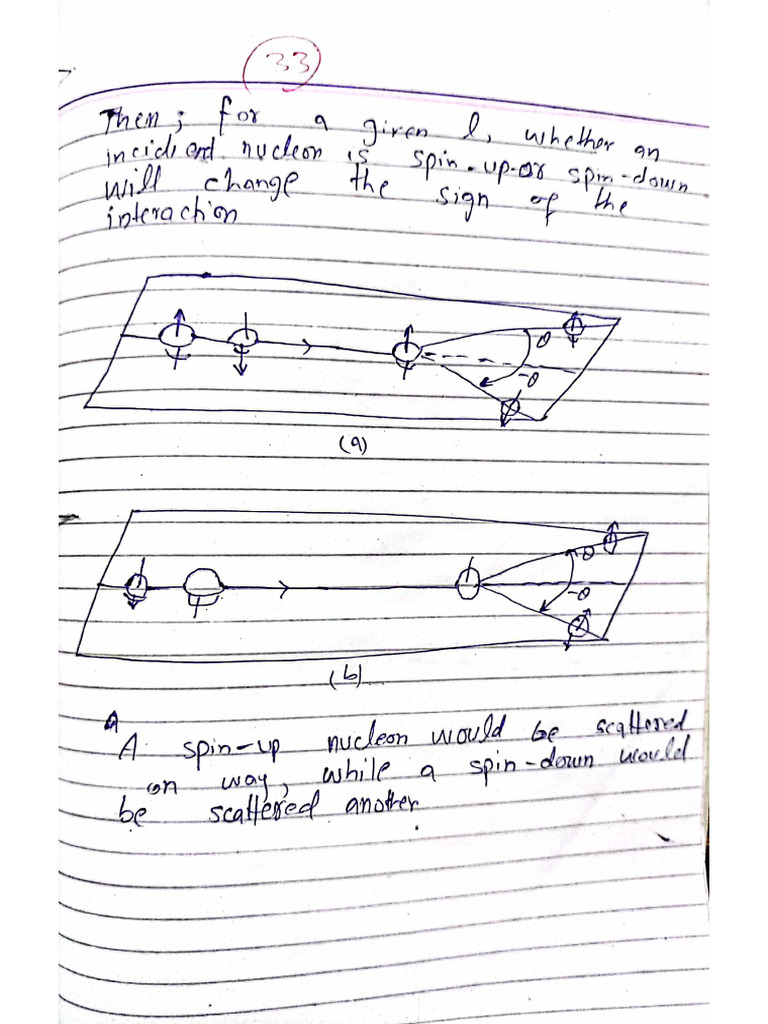 33
Then; for a given l, whether an
incident nucleon is spin-up-or spin-down
will change the sign of the
interaction
θ
-θ
(a)
θ
-θ
(b)
A spin-up nucleon would be scattered
on way, while a spin-down would
be scattered another.